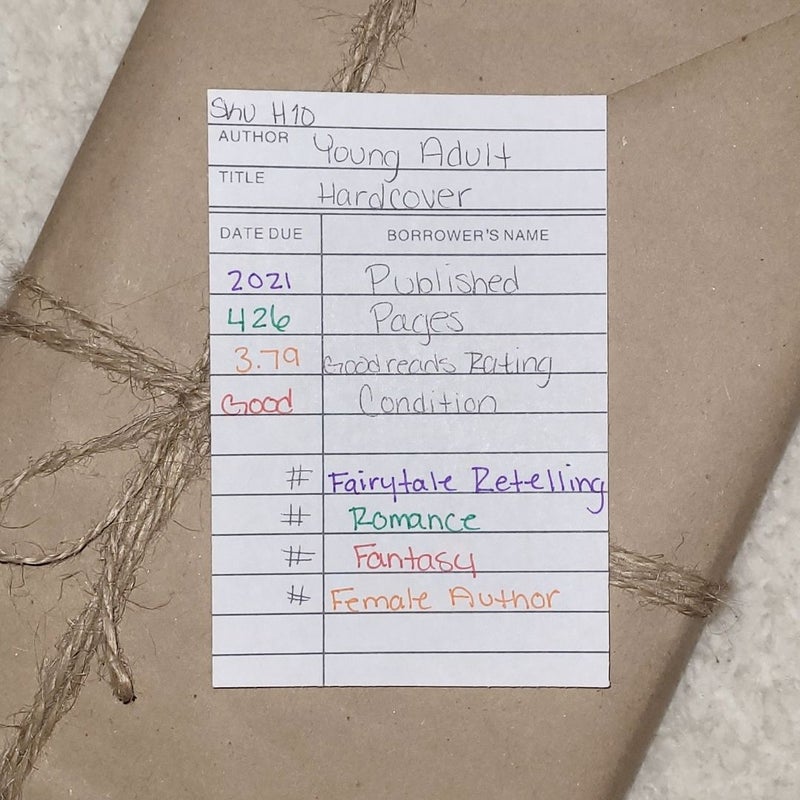 Shu H10
AUTHOR Young Adult
TITLE Hardcover
DATE DUE BORROWER'S NAME
2021 Published
426 Pages
3.79 Goodreads Rating
Good Condition
# Fairytale Retelling
# Romance
# Fantasy
# Female Author